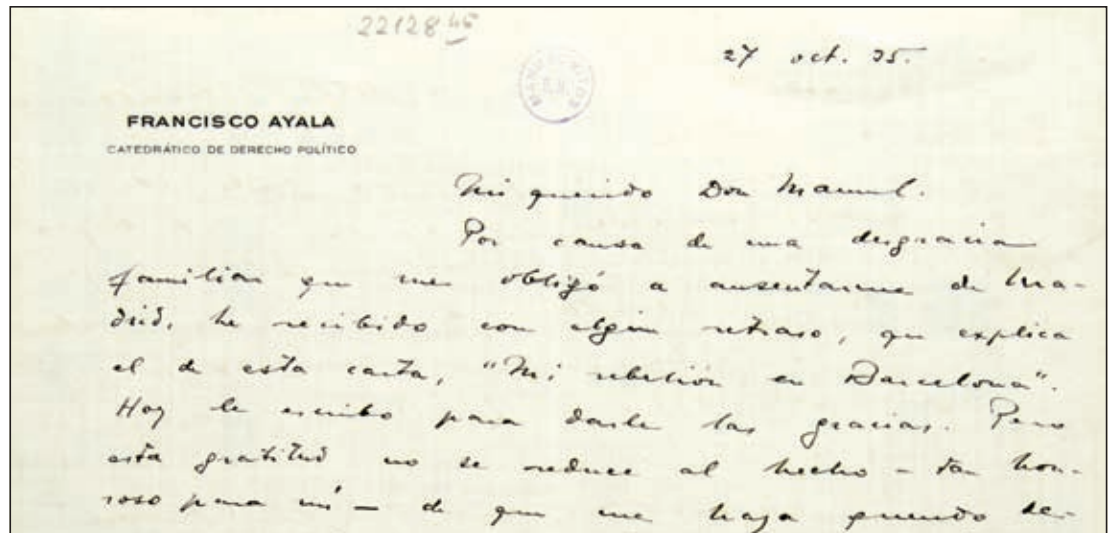 22128 45
27 oct. 35.
FRANCISCO AYALA
CATEDRÁTICO DE DERECHO POLÍTICO
Mi querido Don Manuel.
Por causa de una desgracia
familiar que me obligó a ausentarme de Ma-
drid, he recibido con algún retraso, que explica
el de esta carta, "Mi rebelión en Barcelona".
Hoy le escribo para darle las gracias. Pero
esta gratitud no se reduce al hecho – tan hon-
roso para mí – de que me haya querido